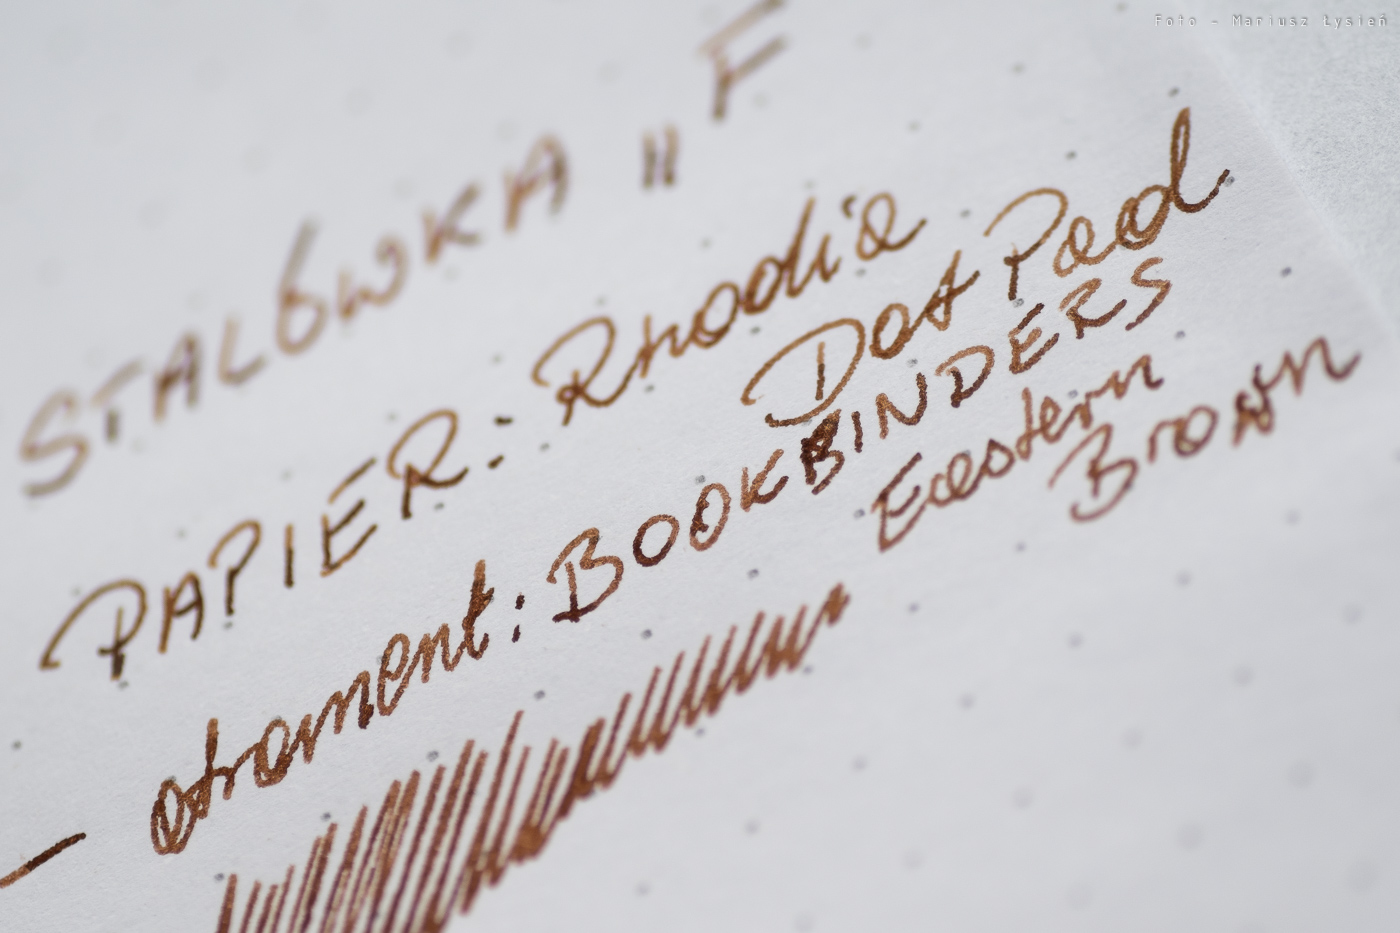 Foto - Mariusz Łysień
STALÓWKA „F
PAPIER: Rhodia
Dot Pad
atrament: BOOKBINDERS
Eastern
Brown